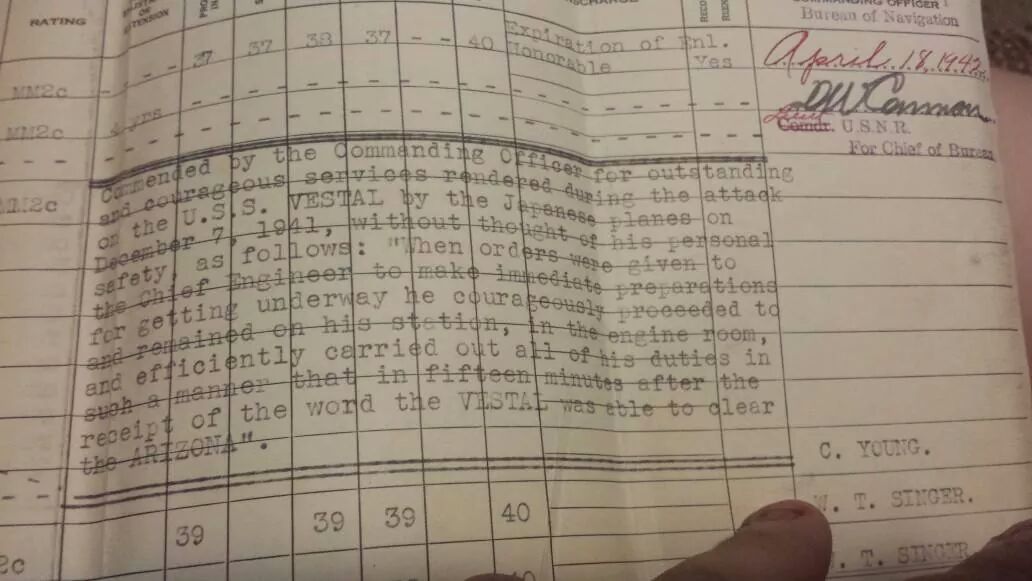 RATING
OR
EXTENSION
COMMANDING OFFICER
Bureau of Navigation
37 37 38 37 - - 40 Expiration of Enl.
Honorable Yes
April 18, 1942
MM2c
DW Cannon
MM2c 4 yrs
Lieut Comdr. U.S.N.R.
For Chief of Bureau
MM2c
Commended by the Commanding Officer for outstanding
and courageous services rendered during the attack
on the U.S.S. VESTAL by the Japanese planes on
December 7, 1941, without thought of his personal
safety, as follows: "When orders were given to
the Chief Engineer to make immediate preparations
for getting underway he courageously proceeded to
and remained on his station, in the engine room,
and efficiently carried out all of his duties in
such a manner that in fifteen minutes after the
receipt of the word the VESTAL was able to clear
the ARIZONA".
C. YOUNG.
W. T. SINGER.
39 39 39 40
2c
. T. SINGER
40